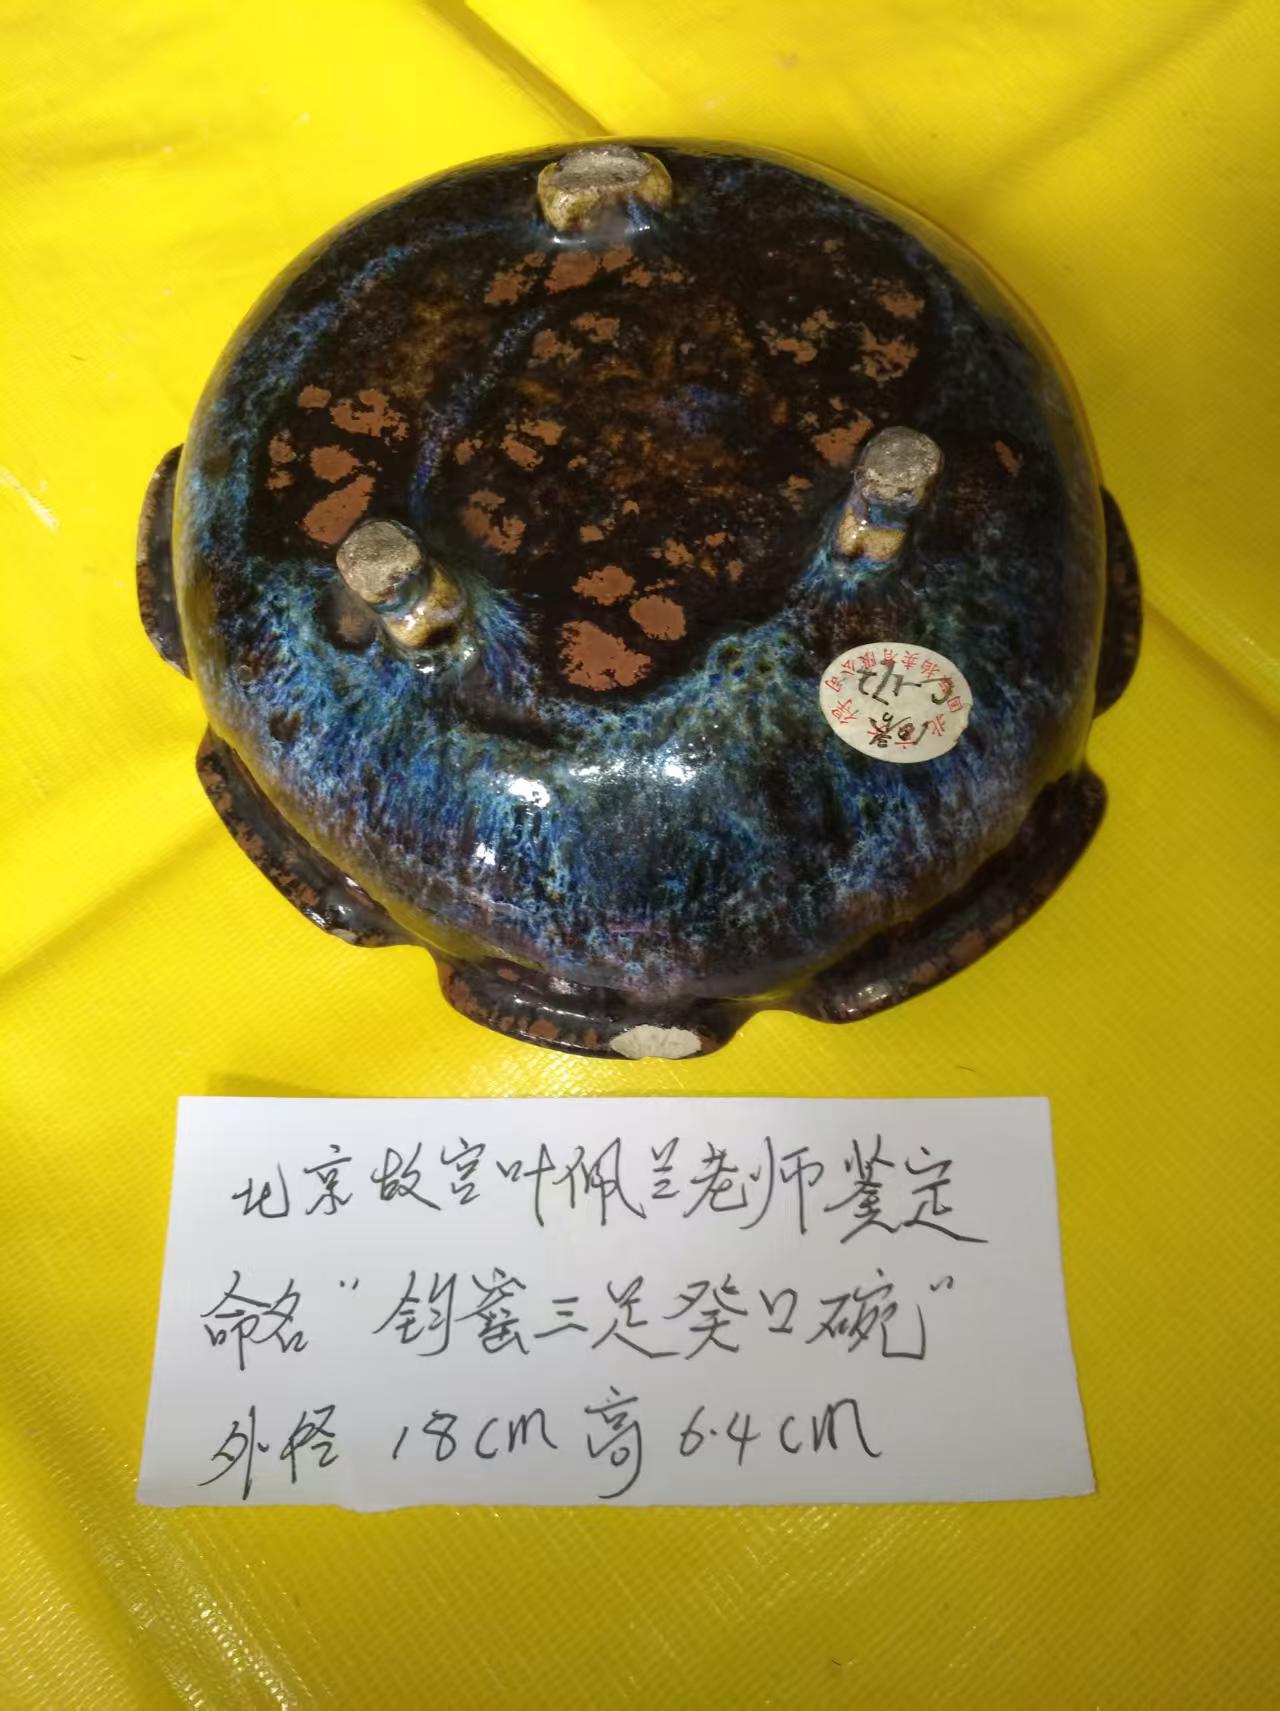 北京故宫叶佩兰老师鉴定
命名“钧窑三足癸口碗”
外径 18cm 高 6.4cm